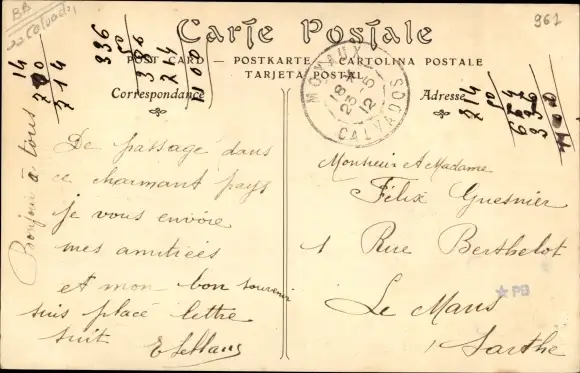 BB
22 Calvados
961
Carte Postale
POST CARD — POSTKARTE — CARTOLINA POSTALE
TARJETA POSTAL
Correspondance
Adresse
336
50
386
714
714
50
336
MONAUX
18
23-5
12
CALVADOS
Bonjour à tous
De passage dans
ce charmant pays
je vous envoie
mes amitiées
et mon bon souvenir
suis placé lettre
suit
Monsieur et Madame
Félix Guesnier
1 Rue Berthelot
Le Mans
Sarthe
PB